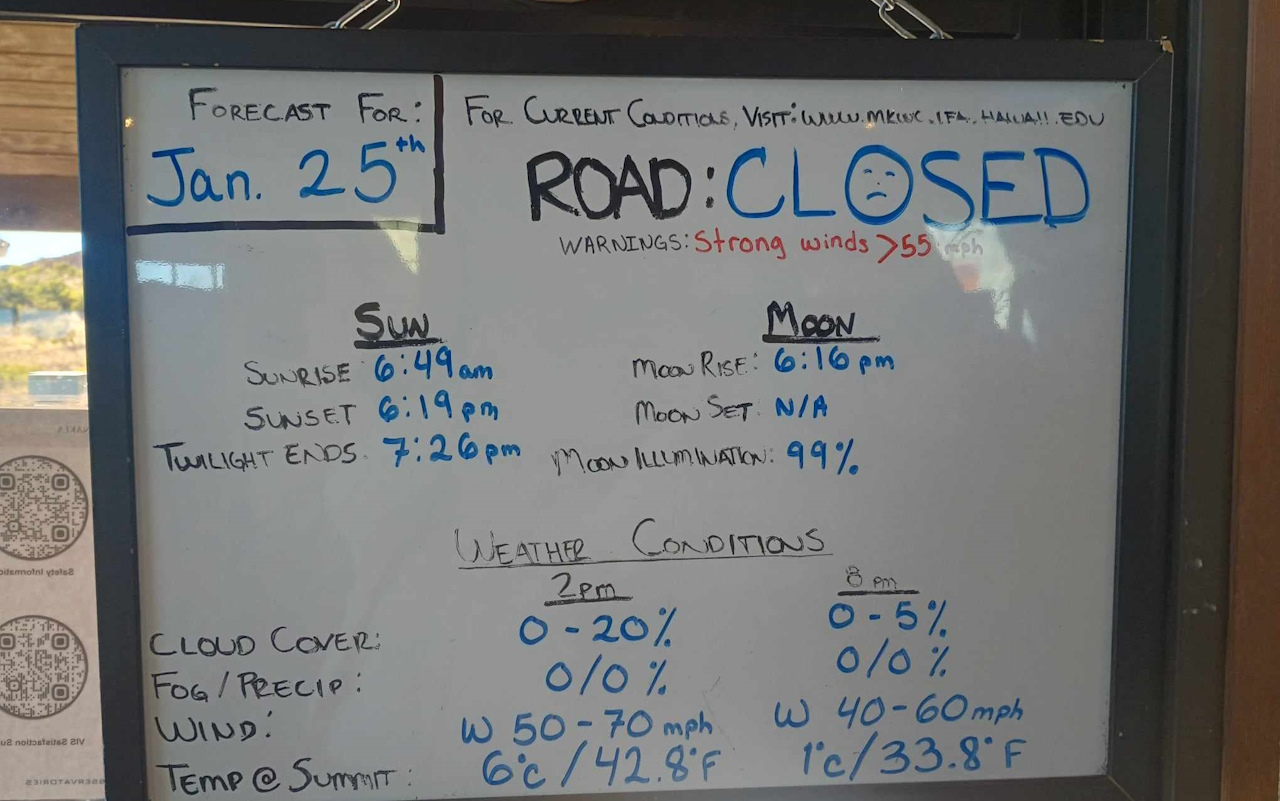 FORECAST FOR:
Jan. 25th
FOR CURRENT CONDITIONS, VISIT: WWW.MKWC.IFA.HAWAII.EDU
ROAD: CLOSED
WARNINGS: Strong winds >55 mph
SUN
SUNRISE 6:49 am
SUNSET 6:19 pm
TWILIGHT ENDS 7:26 pm
MOON
MOON RISE: 6:16 pm
MOON SET: N/A
MOON ILLUMINATION: 99%
WEATHER CONDITIONS
2pm 8pm
CLOUD COVER: 0-20% 0-5%
FOG/PRECIP: 0/0% 0/0%
WIND: W 50-70 mph W 40-60 mph
TEMP @ SUMMIT: 6°c/42.8°F 1°c/33.8°F
Safety Informatio
VIS Satisfaction Su